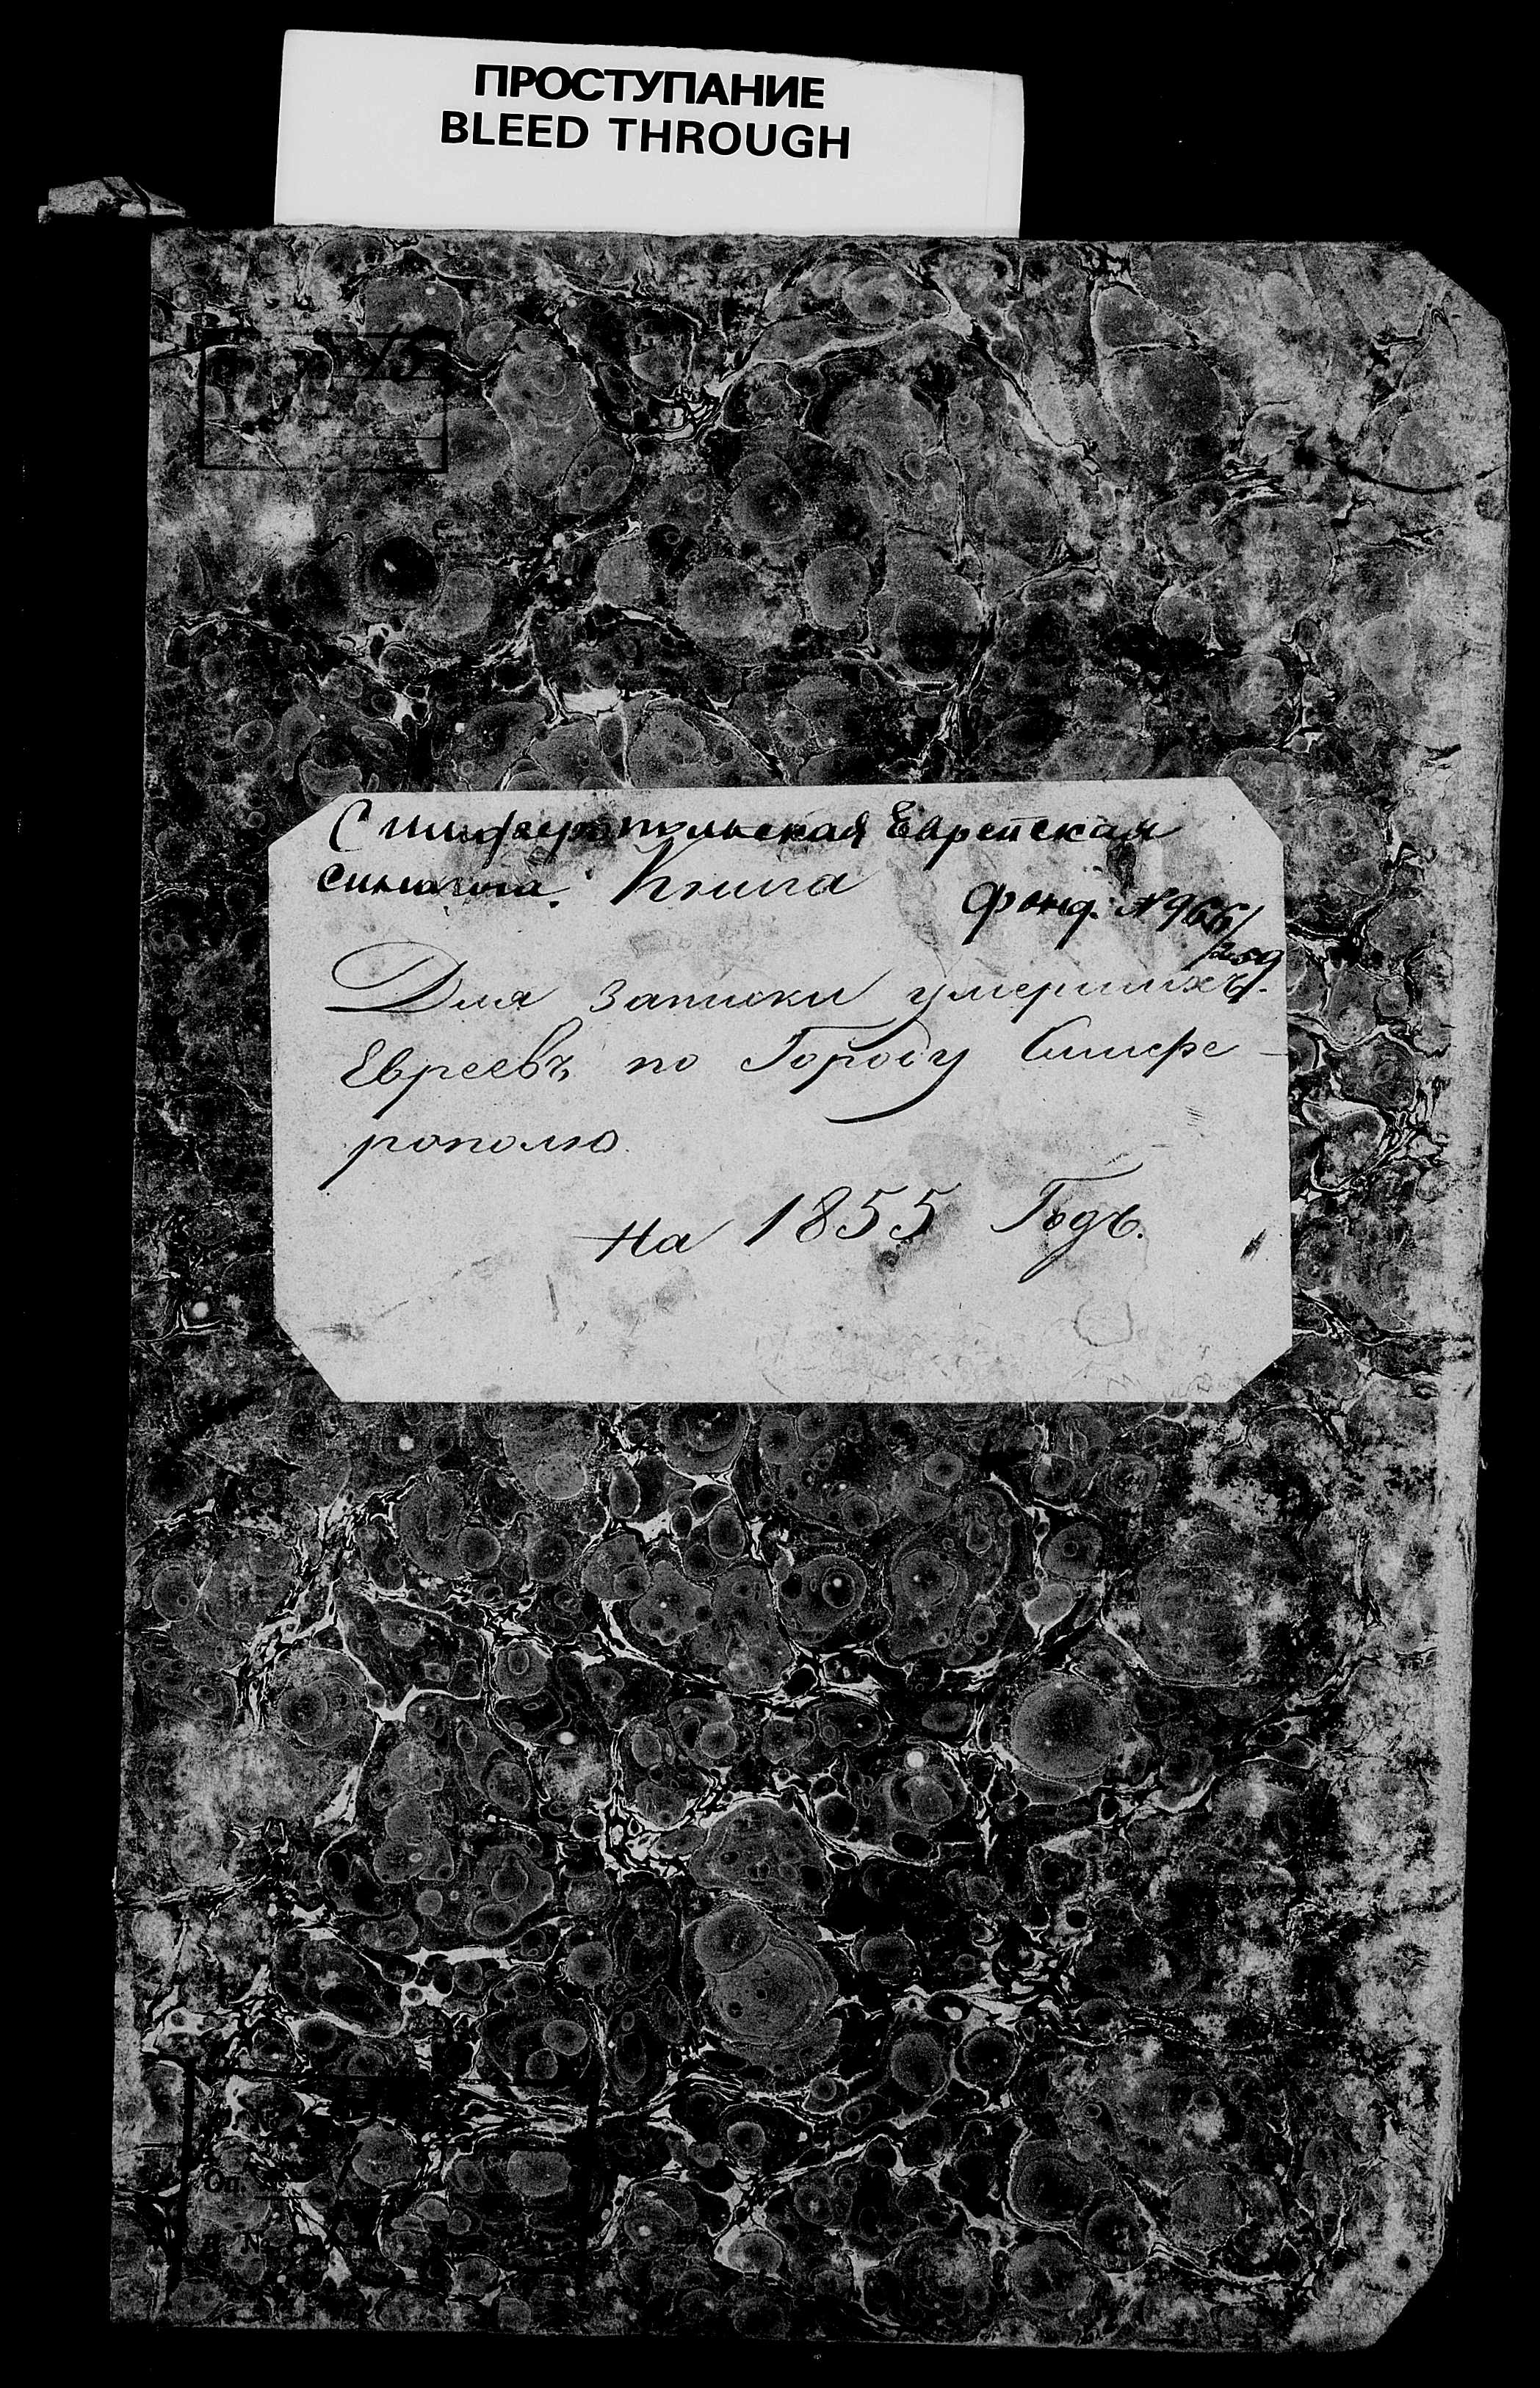 ПРОСТУПАНИЕ
BLEED THROUGH
15
Симферопольская Еврейская
синагога. Книга
Фонд. №966/259
Для записки умершихъ
Евреевъ по Городу Симфе-
рополю.
На 1855 Годъ.
Оп. №